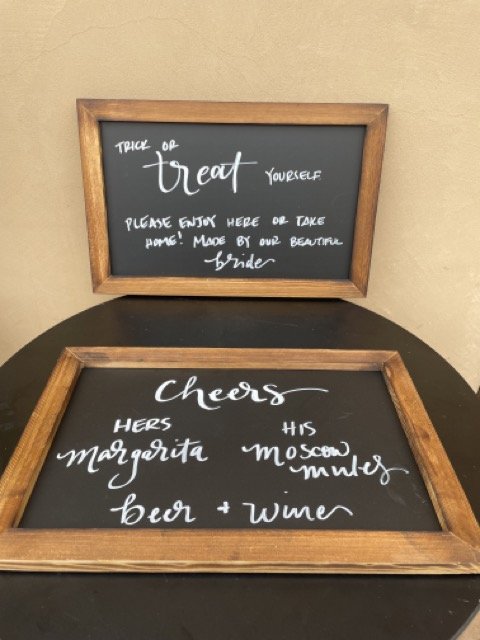 TRICK OR
treat YOURSELF
PLEASE ENJOY HERE OR TAKE
HOME! MADE BY OUR BEAUTIFUL
bride
Cheers
HERS HIS
margarita moscow
mules
beer + wine